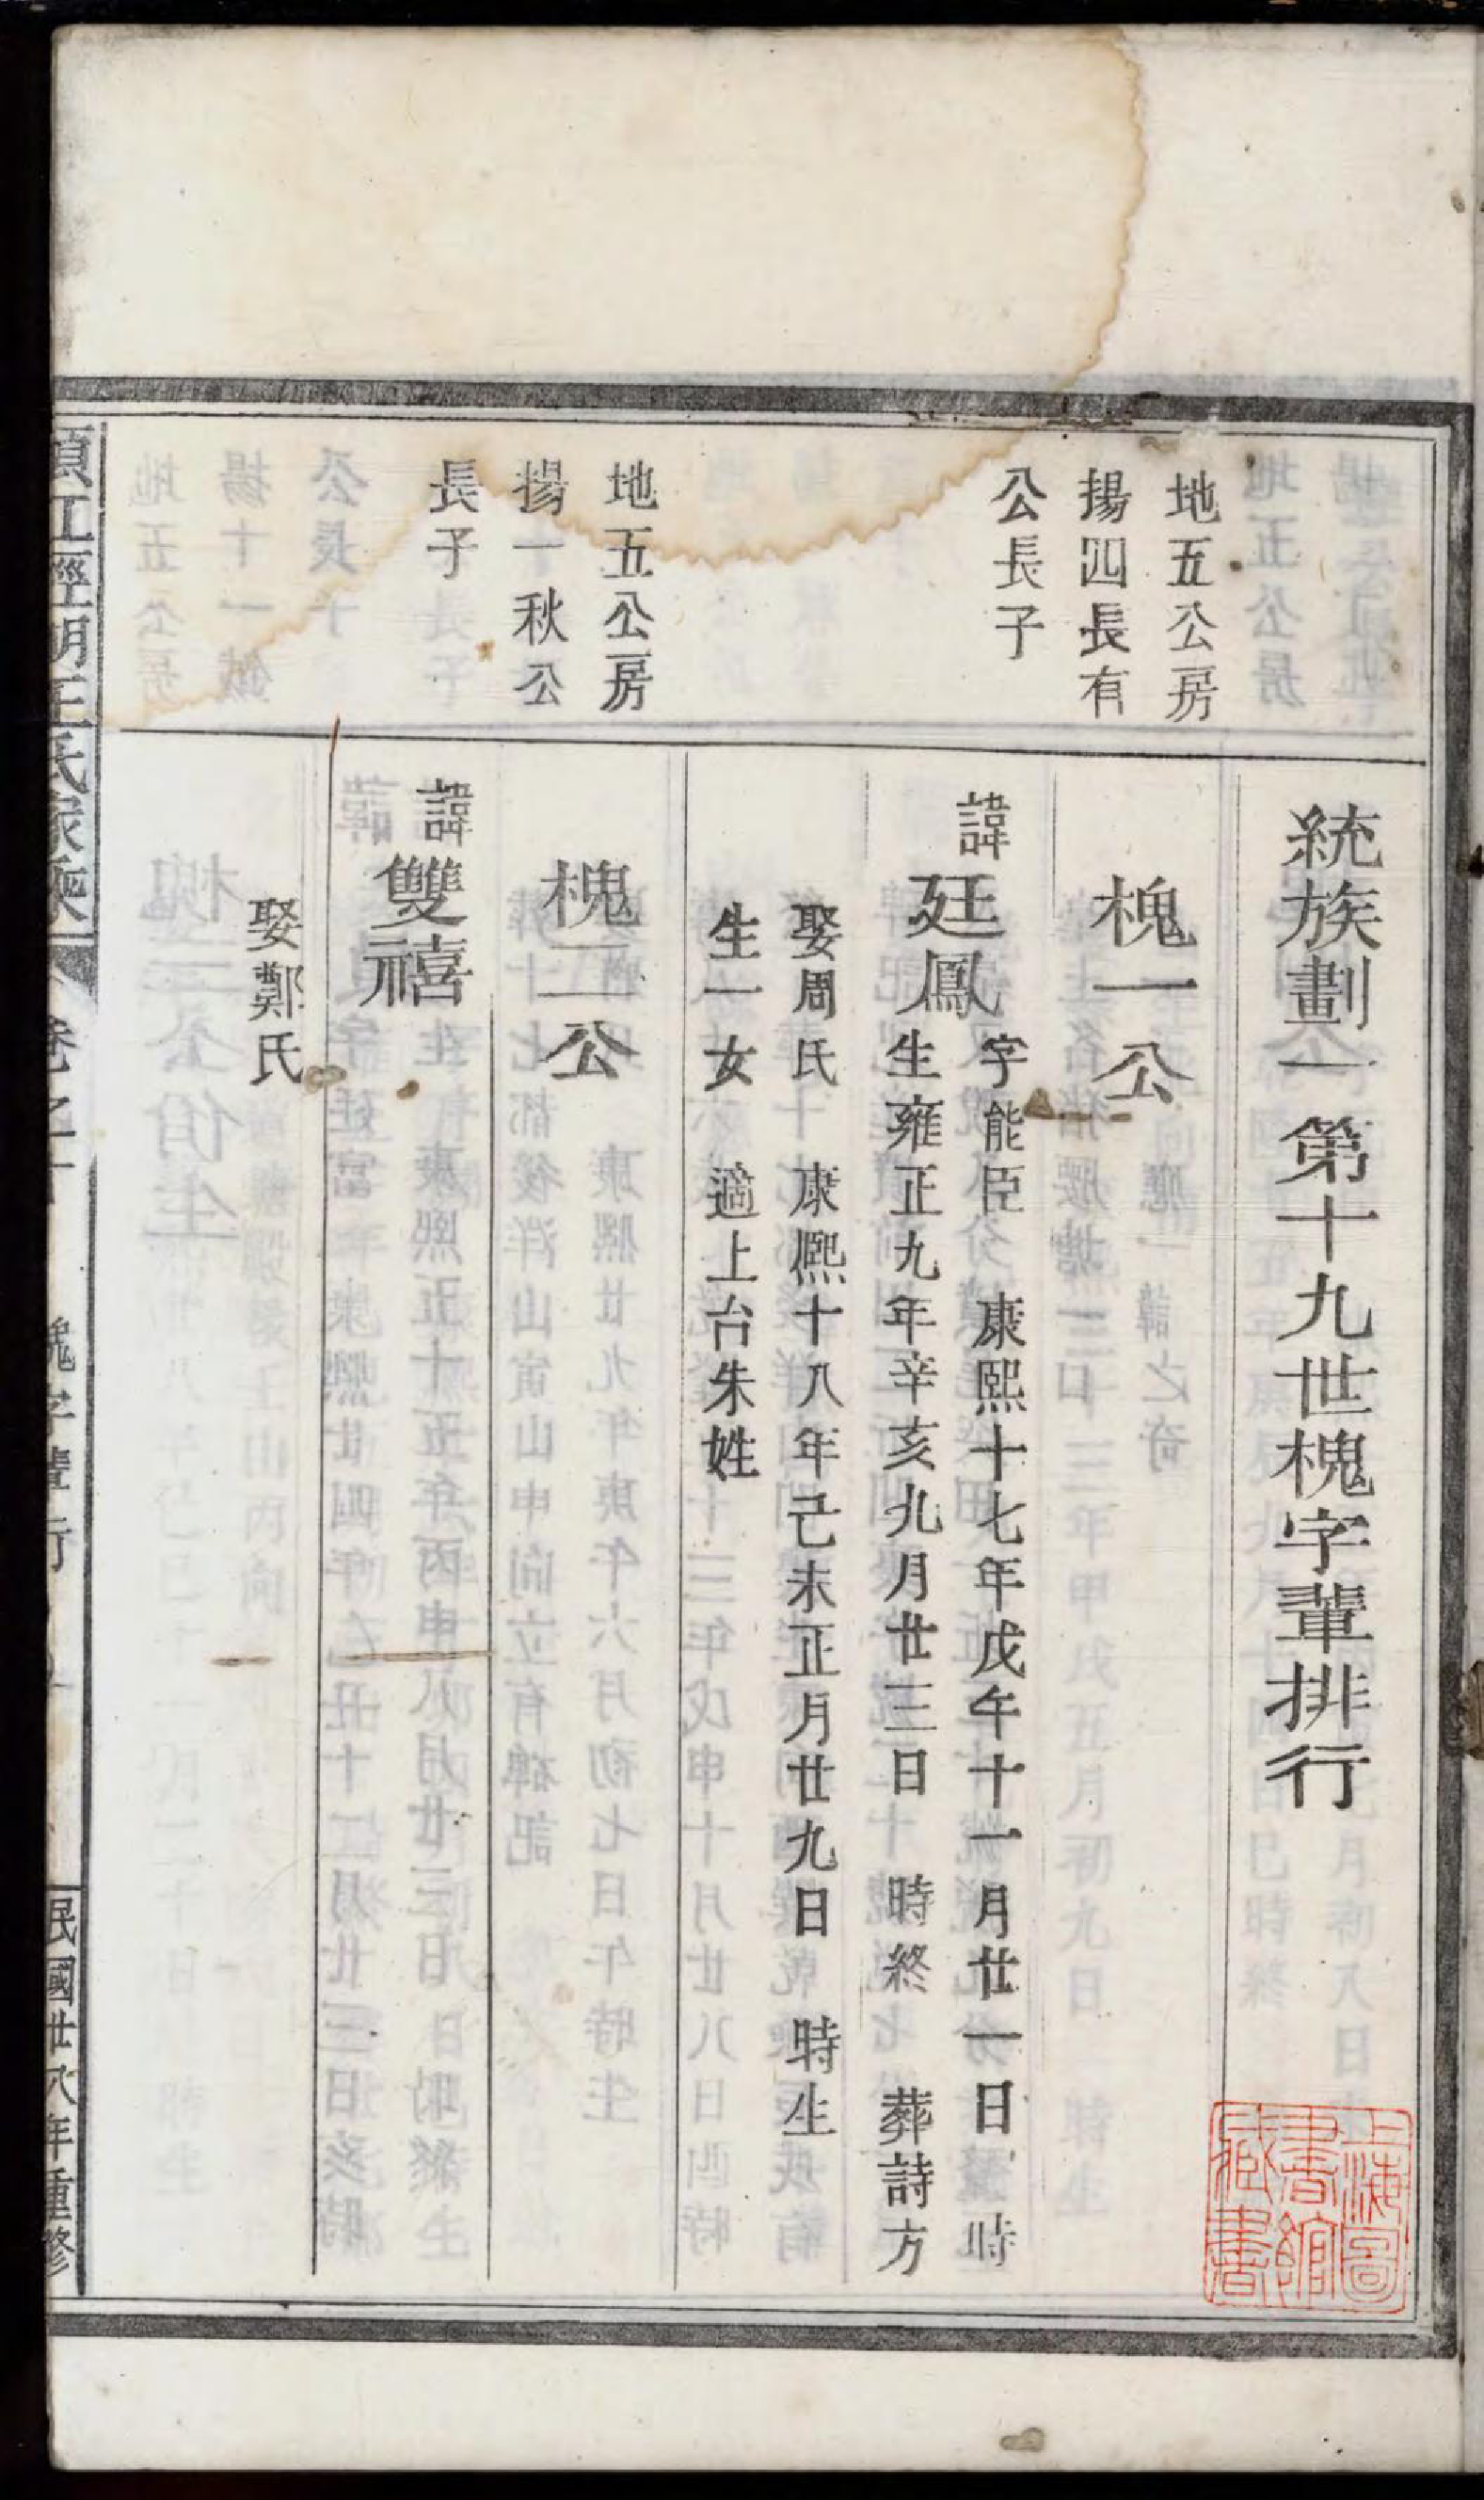 統族劃一第十九世槐字輩排行
地五公房
揚四長有
公長子
槐一公
諱廷鳳
字能臣 康熙十七年戊午十一月廿一日 時
生雍正九年辛亥九月廿三日 時終 葬詩方
娶周氏 康熙十八年己未正月廿九日 時生
生一女 適上台朱姓
地五公房
揚一秋公
長子
槐二公
諱雙禧
娶鄭氏
王氏家乘
卷之十
槐字輩行
民國廿八年重修
上海圖書館藏書